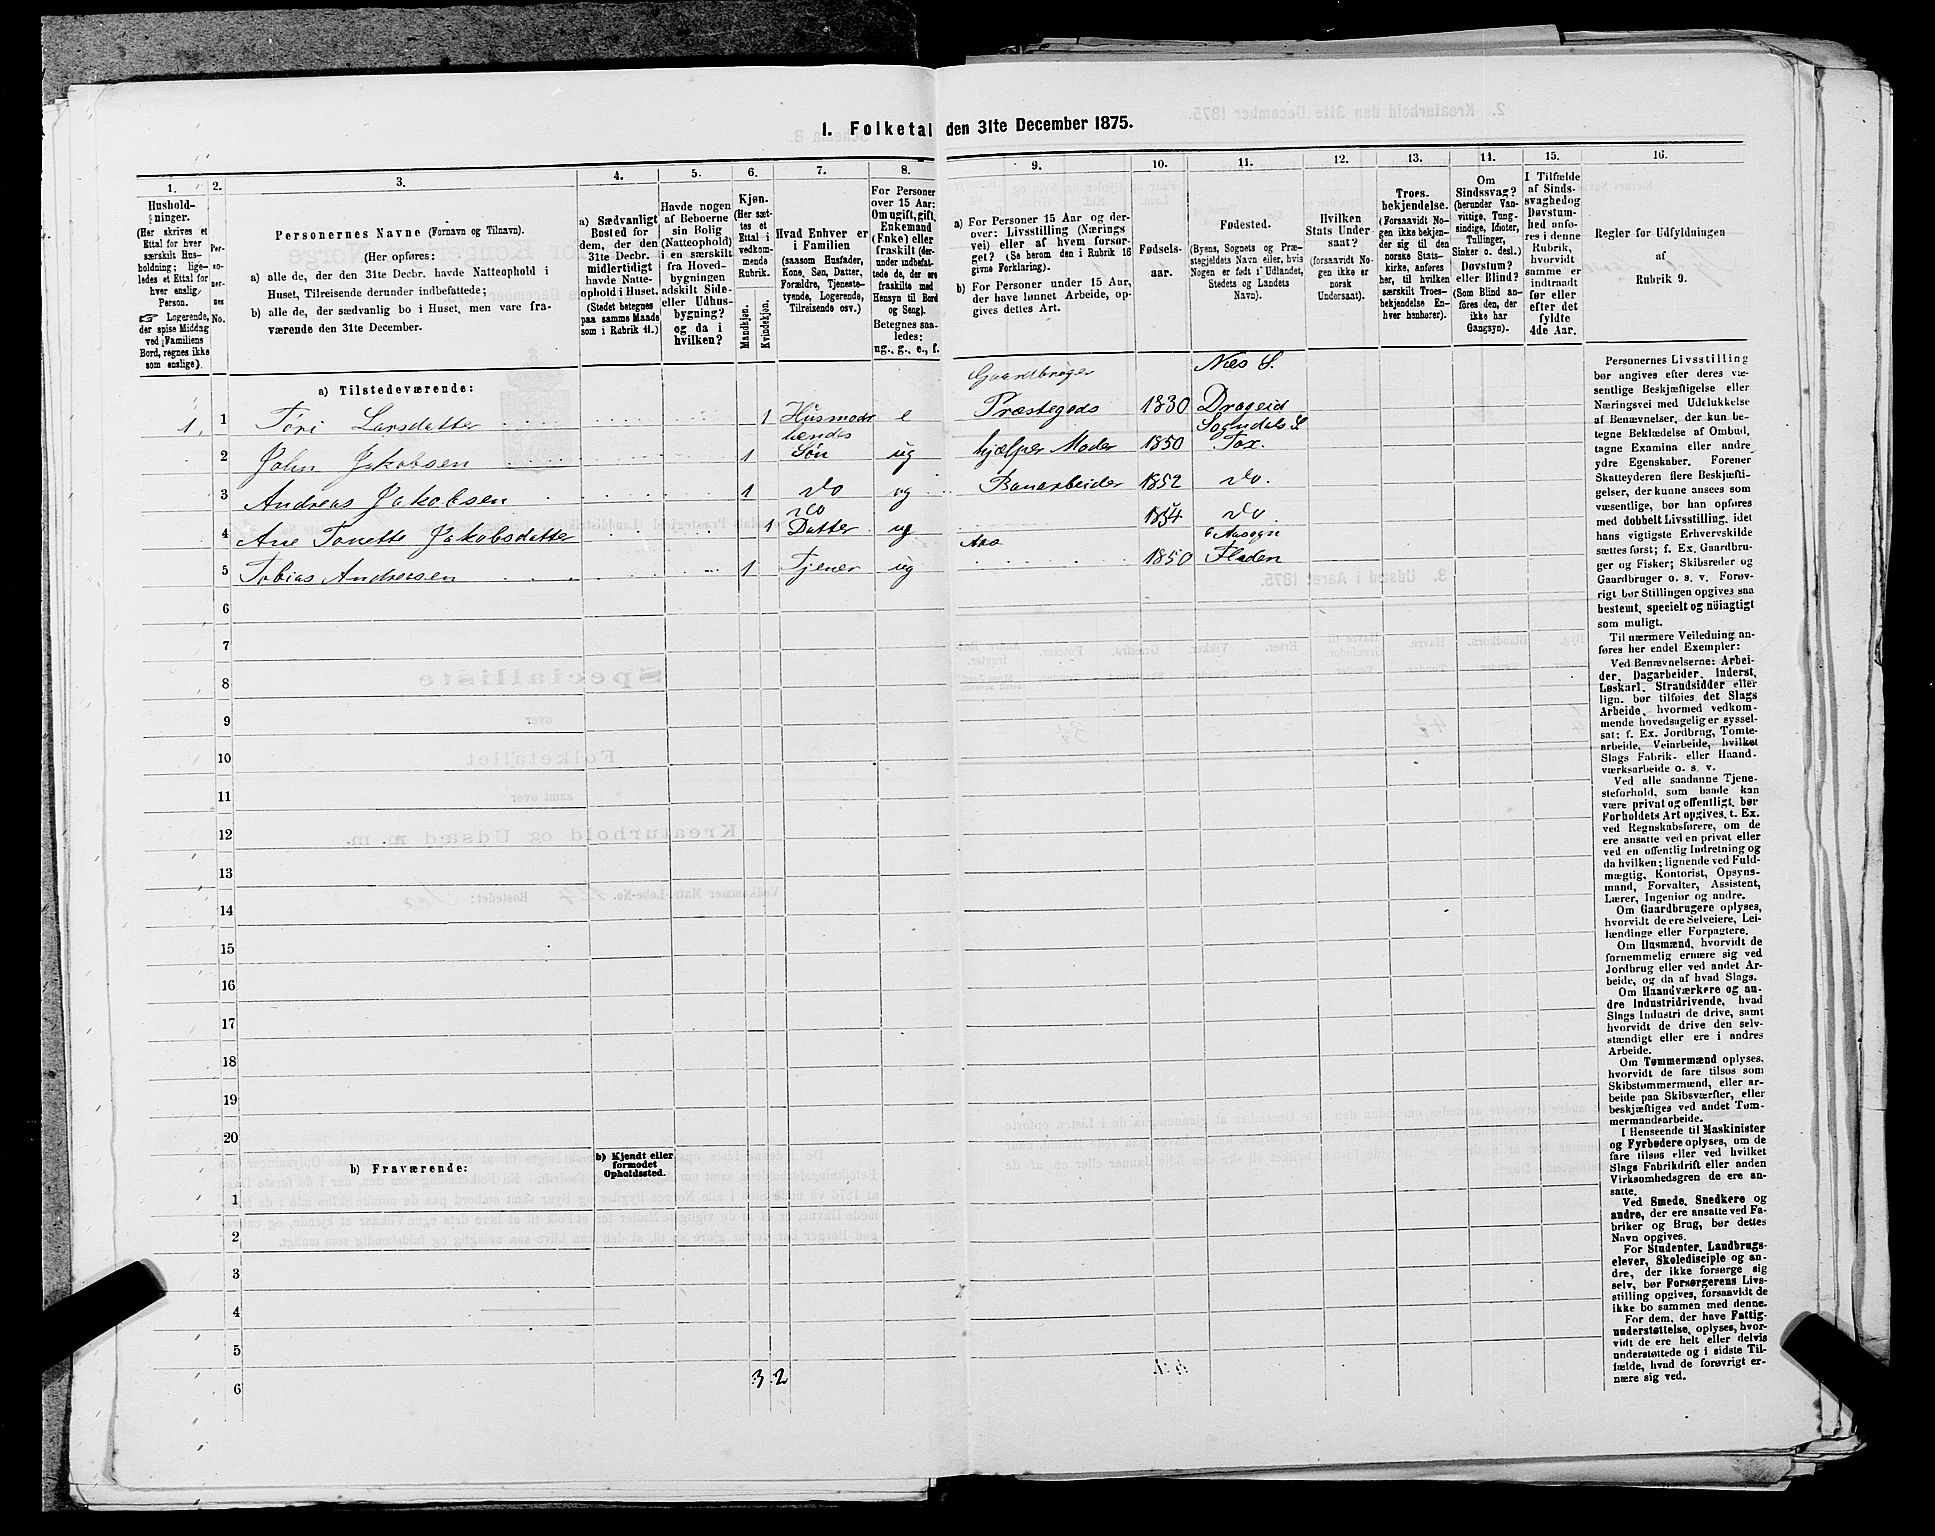 1. Folketal den 31te December 1875.
1.
2.
3.
4.
5.
6.
7.
8.
9.
10.
11.
12.
13.
14.
15.
16.
Hushold-
ninger.
(Her skrives et
Ettal for hver
særskilt Hus-
holdning; lige-
ledes et Ettal for
hver enslig
Person.
☞ Logerende,
der spise Middag
ved Familiens
Bord, regnes ikke
som enslige).
Per-
so-
ner-
nes
No.
Personernes Navne (Fornavn og Tilnavn).
(Her opføres:
a) alle de, der den 31te Decbr. havde Natteophold i
Huset, Tilreisende derunder indbefattede;
b) alle de, der sædvanlig bo i Huset, men vare fra-
værende den 31te December.
a) Sædvanligt
Bosted for
dem, der den
31te Decbr.
midlertidigt
havde Natte-
ophold i Huset.
(Stedet betegnes
paa samme Maade
som i Rubrik 11.)
Havde nogen
af Beboerne
sin Bolig
(Natteophold)
i en særskilt
fra Hoved-
bygningen
adskilt Side-
eller Udhus-
bygning?
og da i
hvilken?
Kjøn.
(Her sæt-
tes et
Ettal i
vedkom-
mende
Rubrik.
Mandkjøn.
Kvindekjøn.
Hvad Enhver er
i Familien
(saasom Husfader,
Kone, Søn, Datter,
Forældre, Tjeneste-
tyende, Logerende,
Tilreisende osv.)
For Personer
over 15 Aar:
Om ugift, gift,
Enkemand
(Enke) eller
fraskilt (der-
under indbefat-
tede de, der ere
fraskilte med
Hensyn til Bord
og Seng).
Betegnes saa-
ledes:
ug., g., e., f.
a) For Personer 15 Aar og der-
over: Livsstilling (Nærings
vei) eller af hvem forsør-
get? (Se herom den i Rubrik 16
givne Forklaring).
b) For Personer under 15 Aar,
der have lønnet Arbeide, op-
gives dettes Art.
Fødsels-
aar.
Fødested.
(Byens, Sognets og Præ-
stegjeldets Navn eller, hvis
Nogen er født i Udlandet,
Stedets og Landets
Navn).
Hvilken
Stats Under-
saat?
(forsaavidt No-
gen ikke er
norsk
Undersaat).
Troes-
bekjendelse.
(Forsaavidt No-
gen ikke bekjen-
der sig til den
norske Stats-
kirke, anføres
her, til hvilken
særskilt Troes-
bekjendelse En-
hver henhører).
Om
Sindssvag?
(herunder Van-
vittige, Tung-
sindige, Idioter,
Tullinger,
Sinker o. desl.)
Døvstum?
eller Blind?
(Som Blind an-
føres den, der
ikke har
Gangsyn).
I Tilfælde
af Sinds-
svaghed og
Døvstum-
hed anfø-
res i denne
Rubrik,
hvorvidt
samme er
indtraadt
før eller
efter det
fyldte
4de Aar.
Regler for Udfyldningen
af
Rubrik 9.
a) Tilstedeværende:
Gaardbruger Næs S.
1. 1 Tori Larsdatter 1 Husmoder e Præstegods 1830 Drageid
hendes Sogndals S
2 John Jakobsen 1 Søn ug hjælper Moder 1850 Tox.
3 Andreas Jakobsen 1 do ug Banarbeider 1852 do.
do
4 Ane Tonette Jakobsdatter 1 Datter ug 1854 do
Aasogn
5 Tobias Andreasen 1 Tjener ug 1850 Fladen
6
7
8
9
10
11
12
13
14
15
16
17
18
19
20
b) Fraværende:
b) Kjendt eller
formodet
Opholdssted.
1
2
3
4
5
6
3 2
Personernes Livsstilling
bør angives efter deres væ-
sentlige Beskjæftigelse eller
Næringsvei med Udelukkelse
af Benævnelser, der kun be-
tegne Beklædelse af Ombud,
tagne Examina eller andre
ydre Egenskaber. Forener
Skatteyderen flere Beskjæfti-
gelser, der kunne ansees som
væsentlige, bør han opføres
med dobbelt Livsstilling, idet
hans vigtigste Erhvervskilde
sættes først; f. Ex. Gaardbru-
ger og Fisker; Skibsreder og
Gaardbruger o. s. v. Forøv-
rigt bør Stillingen opgives saa
bestemt, specielt og nöiagtigt
som muligt.
Til nærmere Veiledning an-
føres her endel Exempler:
Ved Benævnelserne: Arbei-
der, Dagarbeider, Inderst,
Løskarl, Strandsidder eller
lign. bør tilføies det Slags
Arbeide, hvormed vedkom-
mende hovedsagelig er syssel-
sat; f. Ex. Jordbrug, Tomte-
arbeide, Veiarbeide, hvilket
Slags Fabrik- eller Haand-
værksarbeide o. s. v.
Ved alle saadanne Tjene-
steforhold, som baade kan
være privat og offentligt, bør
Forholdets Art opgives, t. Ex.
ved Regnskabsførere, om de
ere ansatte ved en privat eller
ved en offentlig Indretning og
da hvilken; lignende ved Fuld-
mægtig, Kontorist, Opsyns-
mand, Forvalter, Assistent,
Lærer, Ingeniør og andre.
Om Gaardbrugere oplyses,
hvorvidt de ere Selveiere, Lei-
lændinge eller Forpagtere.
Om Husmænd, hvorvidt de
fornemmelig ernære sig ved
Jordbrug eller ved andet Ar-
beide, og da af hvad Slags.
Om Haandværkere og an-
dre Industridrivende, hvad
Slags Industri de drive, samt
hvorvidt de drive den selv-
stændigt eller ere i andres
Arbeide.
Om Tømmermænd oplyses,
hvorvidt de fare tilsøs som
Skibstømmermænd, eller ar-
beide paa Skibsværfter, eller
beskjæftiges ved andet Tøm-
mermandearbeide.
I Henseende til Maskinister
og Fyrbødere oplyses, om de
fare tilsøs eller ved hvilket
Slags Fabrikdrift eller anden
Virksomhedsgren de ere an-
satte.
Ved Smede, Snedkere og
andre, der ere ansatte ved Fa-
briker og Brug, bør dettes
Navn opgives.
For Studenter, Landbrugs-
elever, Skoledisciple og an-
dre, der ikke forsørge sig
selv, bør Forsørgerens Livs-
stilling opgives, forsaavidt de
ikke bo sammen med denne.
For dem, der have Fattig-
understøttelse, oplyses, hvor-
vidt de ere helt eller delvis
understøttede og i sidste Til-
fælde, hvad de forøvrigt er-
nære sig ved.